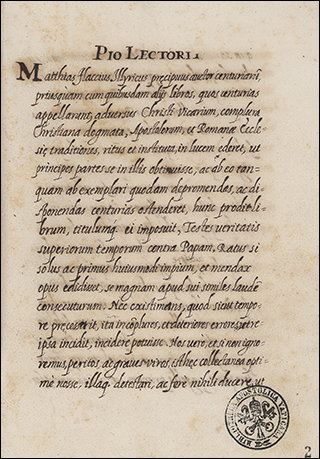 PIO LECTORI.
Matthias flaccius, Illyricus præcipuus auctor centuriarū,
priusquam cum quibusdam alijs libros, quos centurias
appellarunt, adversus Christi vicarium, complura
Christiana dogmata, Apostolorum, et Romanæ Eccle-
siæ traditiones, ritus et instituta, in lucem ederet, ut
principes partes se in illis obtinuisse, ac ab eo tan-
quam ab exemplari quodam depromendas, ac di-
sponendas centurias ostenderet, hunc prodit li-
brum, titulumq. ei imposuit, Testes veritatis
superiorum temporum contra Papam, Ratus si
solus ac primus huiusmodi impium, et mendax
opus edidisset, se magnam apud sui similes laudē
consecuturum. Nec existimans, quod sicut tempo-
re præcessit, ita in cōplures, et deteriores errores
ipsa incidit, incidere potuisse. Nos vero, et si non igno-
remus, peritos, ac graves viros, isthæc collectanea opti-
mo nosse, illaq. detestari, ac fere nihili ducere, ut
BIBLIOTHECA APOSTOLICA VATICANA
2